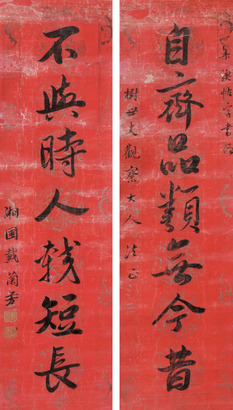 自齋品類無今昔
樹世大觀察大人法正
不與時人較短長
湘圃戴蘭芳